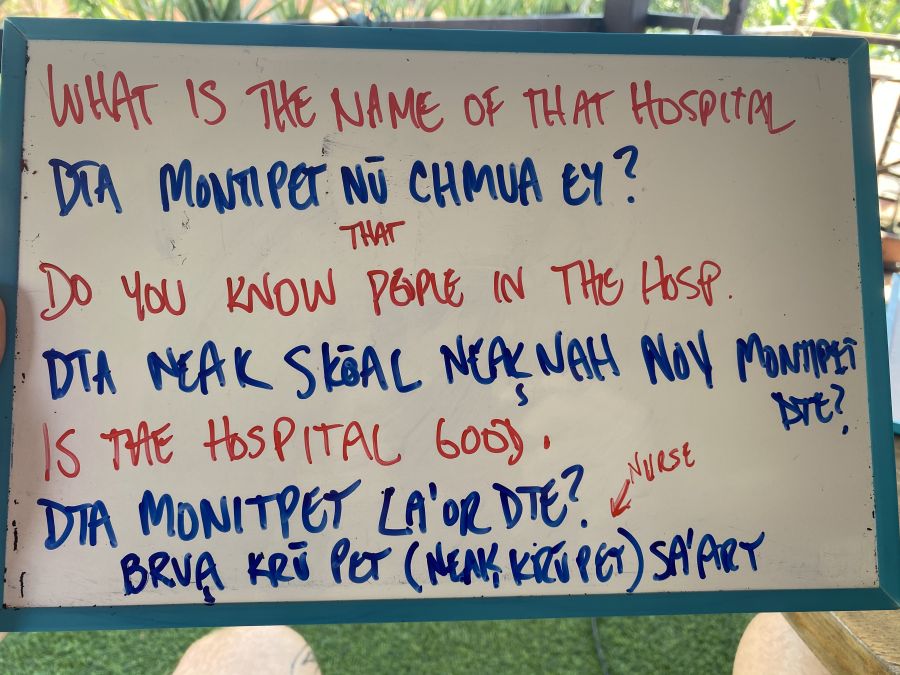 WHAT IS THE NAME OF THAT HOSPITAL
DTA MONTIPET NŪ CHMUA EY?
THAT
DO YOU KNOW PEOPLE IN THE HOSP.
DTA NEAK SKŌAL NEAK, NAH NOV MONTIPET
DTE?
IS THE HOSPITAL GOOD.
NURSE
DTA MONITPET LA'OR DTE?
BRUĄ KRŪ PET (NEAK, KRŪ PET) SA'ART